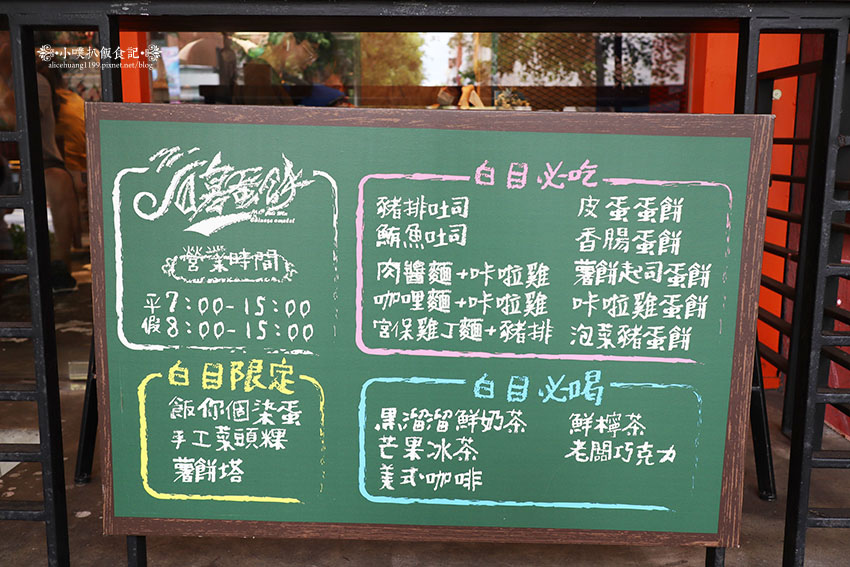 小噗趴飯食記
alicehuang1199.pixnet.net/blog
蛋餅
營業時間
平 7:00-15:00
假 8:00-15:00
白目限定
飯你個染蛋
手工菜頭粿
薯餅塔
白目必吃
豬排吐司
鮪魚吐司
肉醬麵+咔啦雞
咖哩麵+咔啦雞
宮保雞丁麵+豬排
皮蛋蛋餅
香腸蛋餅
薯餅起司蛋餅
咔啦雞蛋餅
泡菜豬蛋餅
白目必喝
黑溜溜鮮奶茶
芒果冰茶
美式咖啡
鮮檸茶
老闆巧克力